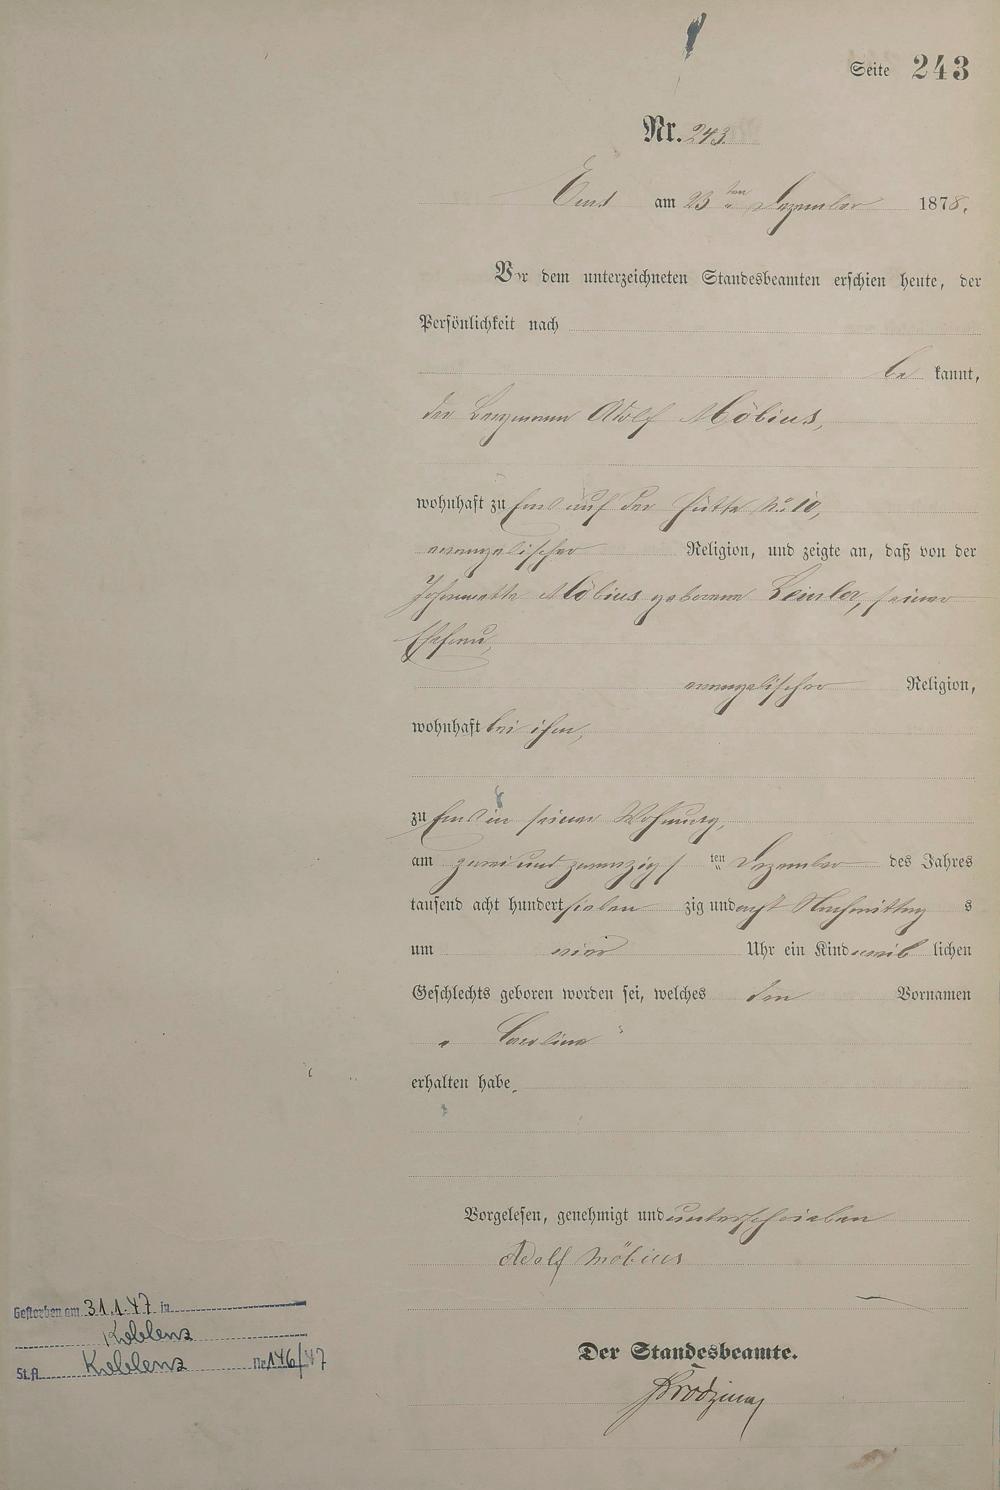 Seite 243
Nr. 243.
Ems am 23ten Dezember 1878.
Vor dem unterzeichneten Standesbeamten erschien heute, der
Persönlichkeit nach
be kannt,
der Bergmann Adolf Möbius,
wohnhaft zu Ems auf der Hütte No. 10,
evangelischer Religion, und zeigte an, daß von der
Johannette Möbius geborenen seiner
Ehefrau,
evangelischer Religion,
wohnhaft bei ihm,
zu Ems in seiner Wohnung,
am zwei und zwanzig ten Dezember des Jahres
tausend acht hundert sieben zig und acht Nachmittag s
um vier Uhr ein Kind weib lichen
Geschlechts geboren worden sei, welches den Vornamen
„ Carolina "
erhalten habe.
Vorgelesen, genehmigt und unterschrieben
Adolf Möbius
Gestorben am 31.1.47 in
Koblenz
St.A. Koblenz Nr. 146/47
Der Standesbeamte.